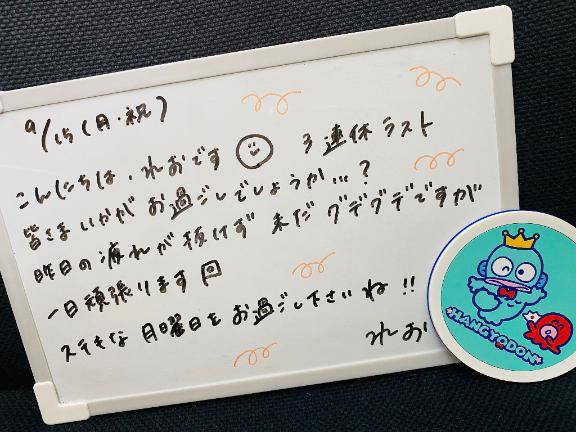 9/15(月・祝)
こんにちは、れおです 3連休ラスト
皆さまいかがお過ごしでしょうか…?
昨日の疲れが抜けず未だグデグデですが
一日頑張ります
ステキな月曜日をお過ごし下さいね!!
れお
HANGYODON